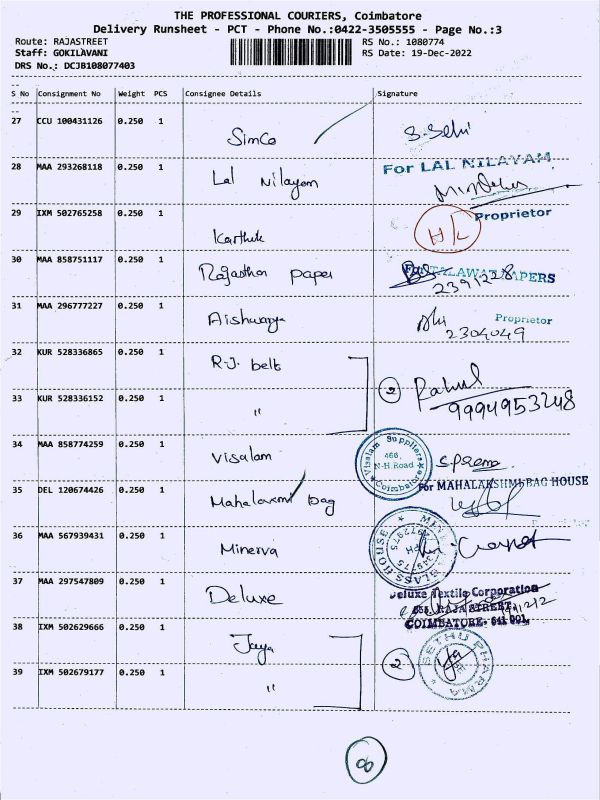 THE PROFESSIONAL COURIERS, Coimbatore
Delivery Runsheet - PCT - Phone No.:0422-3505555 - Page No.:3
Route: RAJASTREET RS No.: 1080774
Staff: GOKILAVANI RS Date: 19-Dec-2022
DRS No.: DCJB108077403
S No Consignment No Weight PCS Consignee Details Signature
27 CCU 100431126 0.250 1 SimCo S. Selvi
28 MAA 293268118 0.250 1 Lal Nilayam For LAL NILAYAM
Proprietor
29 IXM 502765258 0.250 1 Karthik H/L
30 MAA 858751117 0.250 1 Rajasthan paper TALAWAT PAPERS
2391228
31 MAA 296777227 0.250 1 Aishwarya Proprietor
2304049
32 KUR 528336865 0.250 1 R.J. belt 2 Rahul
33 KUR 528336152 0.250 1 " 9994953248
34 MAA 858774259 0.250 1 Visalam Visalam Suppliers 466, N-H.Road Coimbatore S. Prema
35 DEL 120674426 0.250 1 Mahalaxmi bag For MAHALAKSHMI BAG HOUSE
36 MAA 567939431 0.250 1 Minerva MINERVA GLASS HOUSE PH
37 MAA 297547809 0.250 1 Deluxe Deluxe Textile Corporation
RAJA STREET,
COIMBATORE- 641 001.
38 IXM 502629666 0.250 1 Jaya 2 SETHU PHARMA
39 IXM 502679177 0.250 1 "
8